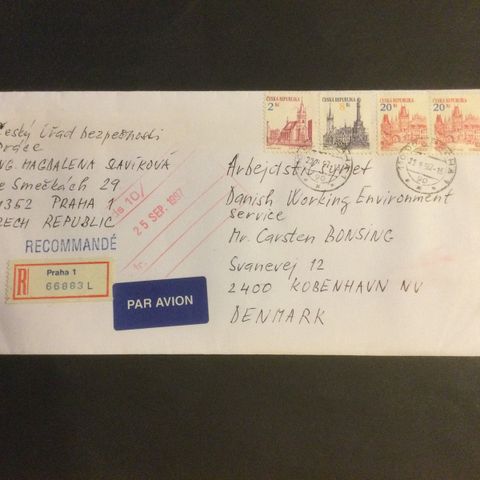 ČESKÁ REPUBLIKA
2 Kč
ČESKÁ REPUBLIKA
8 Kč
ČESKÁ REPUBLIKA
20 Kč
ČESKÁ REPUBLIKA
20 Kč
Český úřad bezpečnosti
práce
ING. MAGDALENA SLAVÍKOVÁ
Ve Smečkách 29
PRAHA 1
CZECH REPUBLIC
RECOMMANDÉ
R
Praha 1
66883 L
25 SEP. 1997
PAR AVION
Danish Working Environment
Service
Mr. Carsten BONSING
Svanevej 12
2400 KOBENHAVN NV
DENMARK